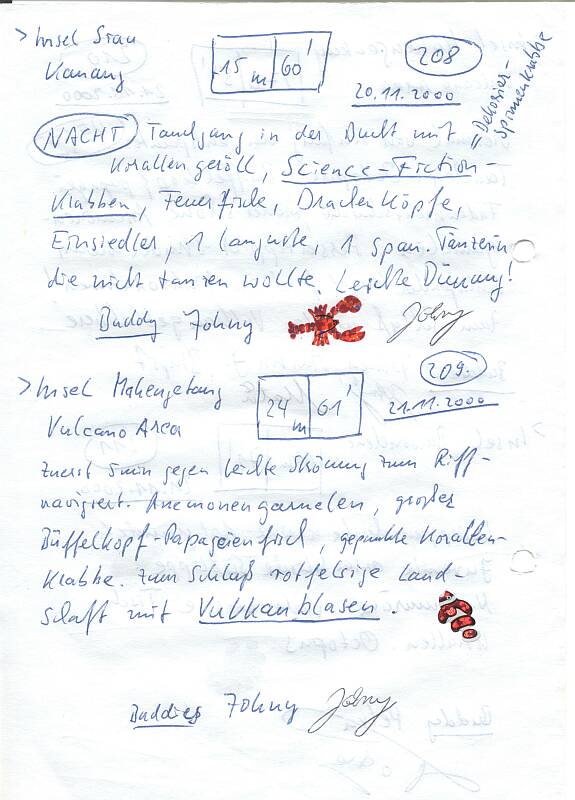 > Insel Siau
Kanang
15 m 60'
208
20.11.2000
"Dekorier-
Spinnenkrabbe
NACHT Tauchgang in der Bucht mit
Korallengeröll, Science-Fiction-
Krabben, Feuerfische, Drachenköpfe,
Einsiedler, 1 Languste, 1 Span. Tänzerin
die nicht tanzen wollte. Leichte Dünung!
Buddy Johny
Johny
> Insel Mahengetang
Vulcano Area
24 m 61'
209.
21.11.2000
Zuerst 5min gegen leichte Strömung zum Riff-
navigiert. Anemonengarnelen, großer
Büffelkopf-Papageienfisch, gepunkte Korallen-
Krabbe. Zum Schluß rotfelsige Land-
schaft mit Vulkanblasen.
Buddies Johny
Johny